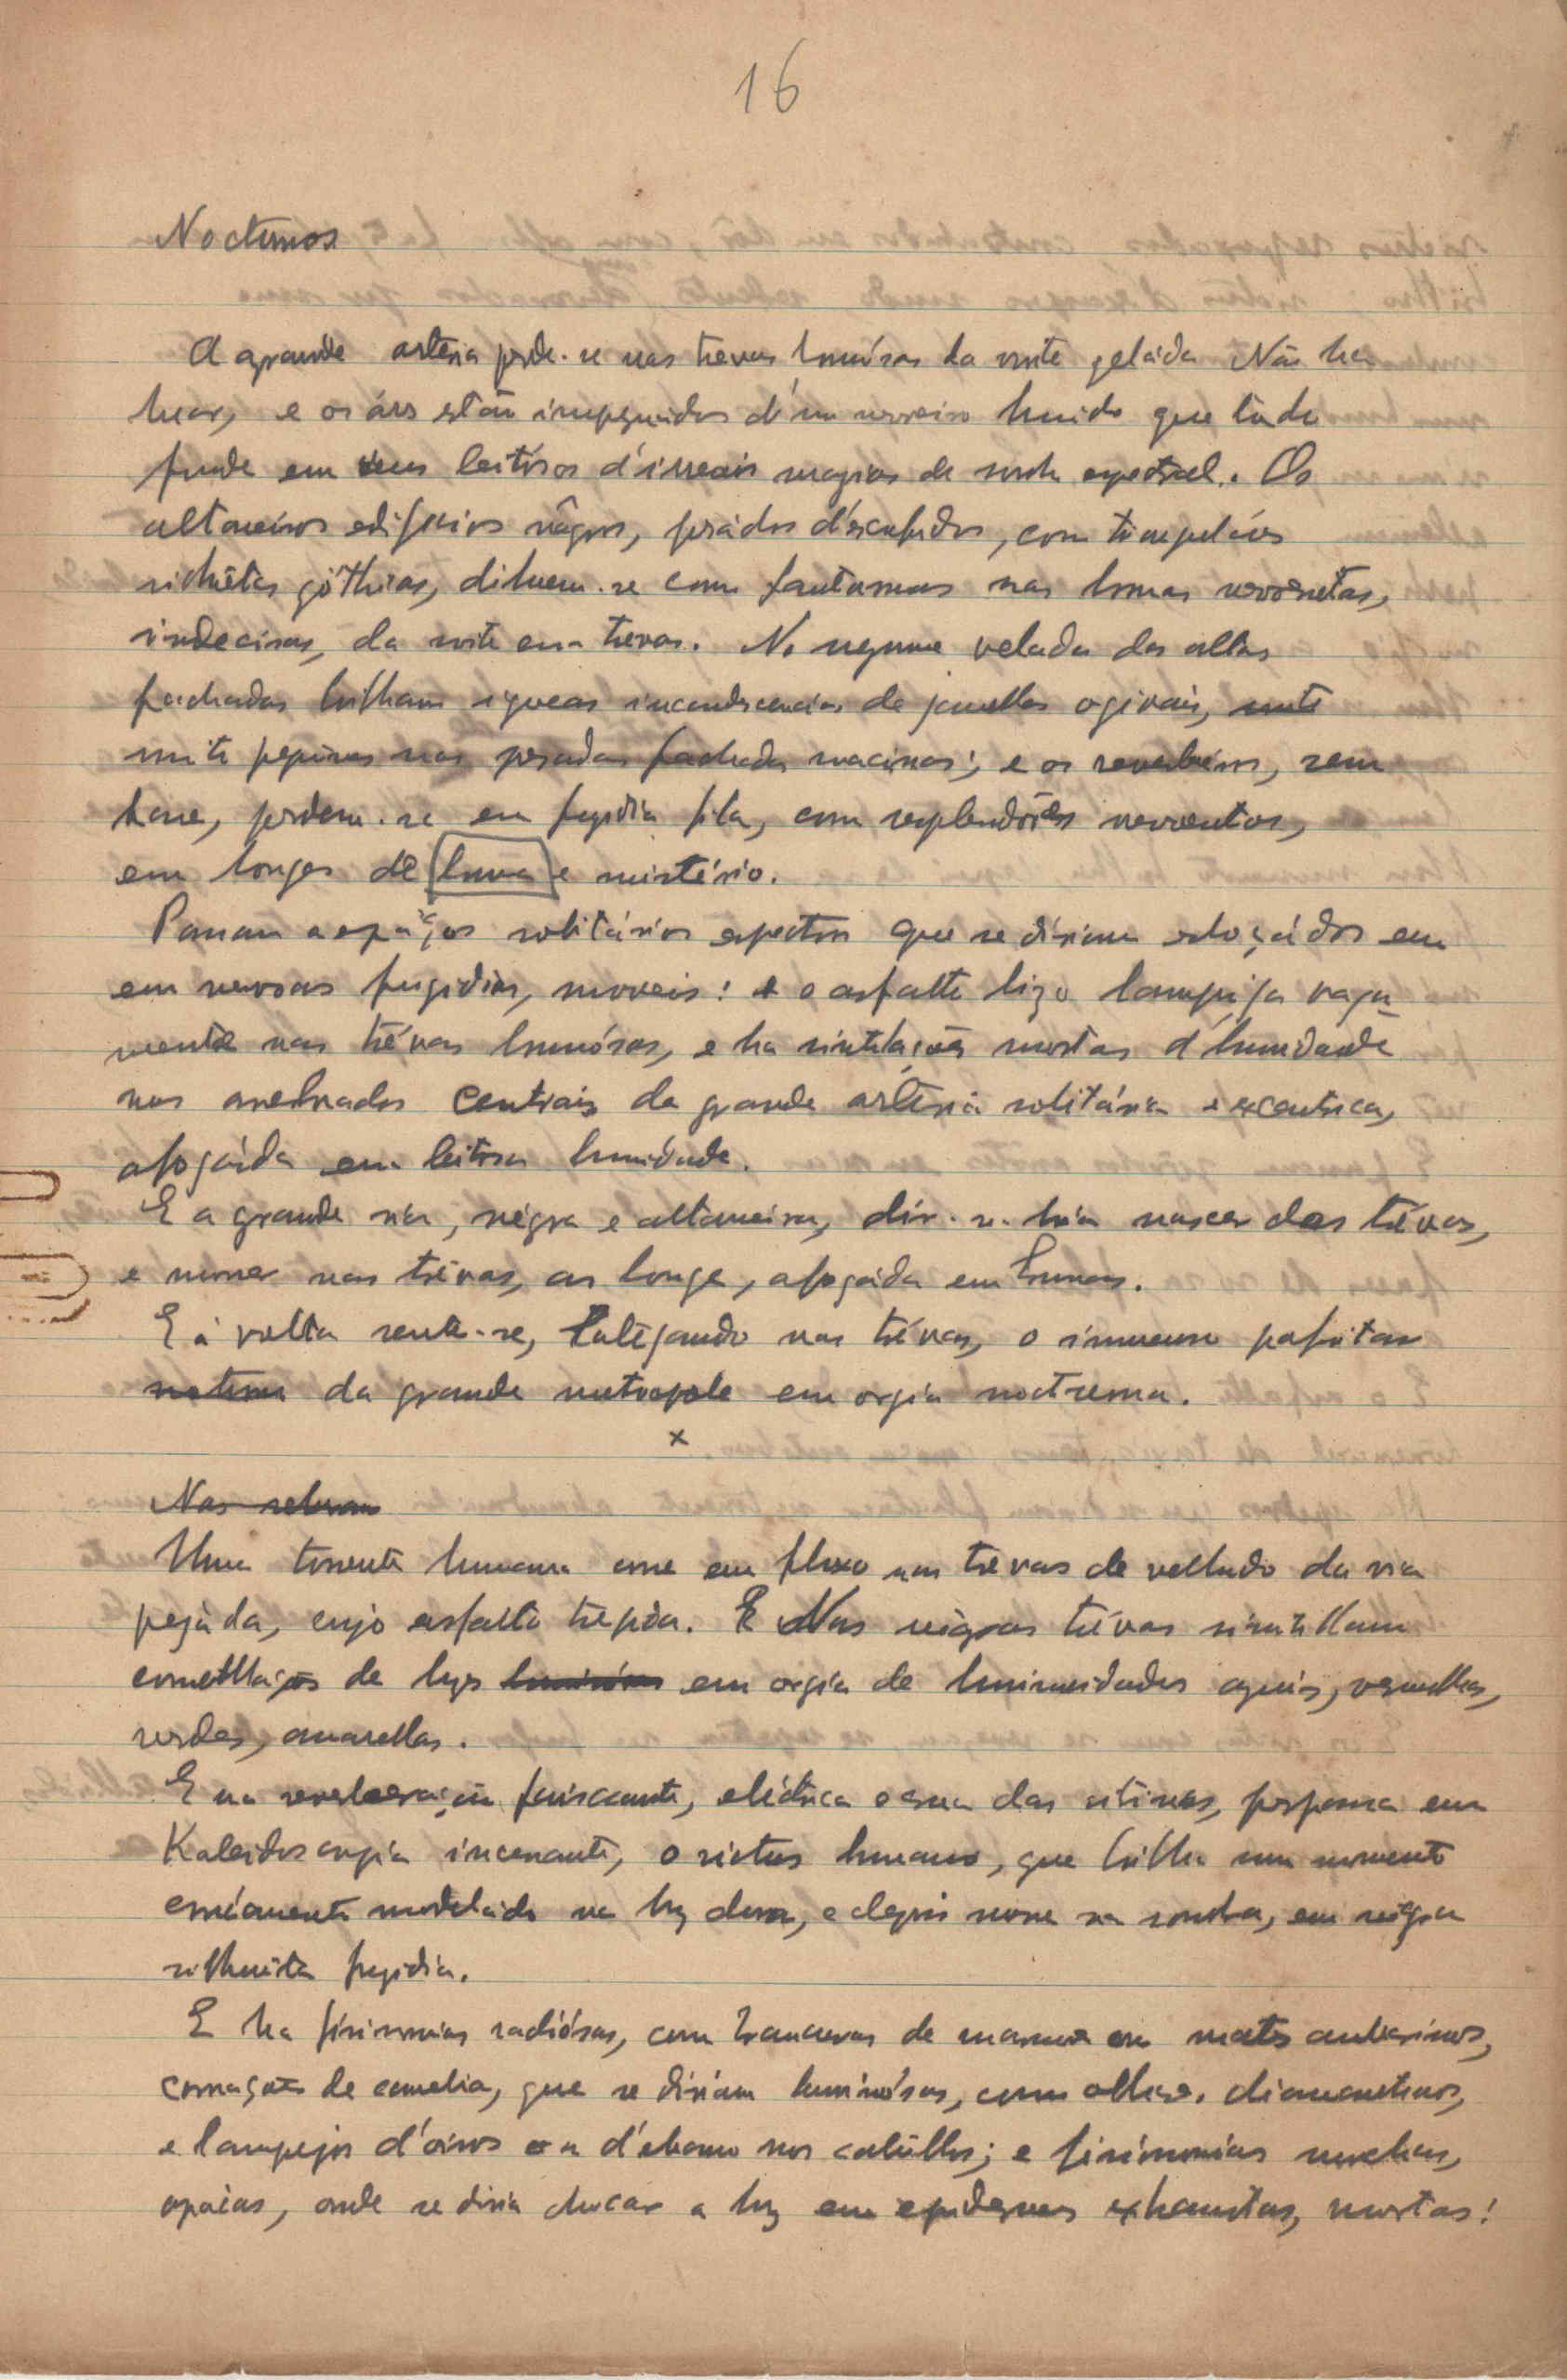 16
Nocturnos
A grande artéria perde-se nas trevas brumósas da noite geláda Não ha
luar, e os áres estão impregnados d'um nevoeiro humido que tudo
funde em tons leitósos d'irreais magias de sonho espectral. Os
altaneiros edificios négros, pesádos d'esculpidos, com
silhuêtas góthicas, diluem-se como fantasmas nas brumas nevoentas,
indecisas, da noite em trevas. No negrume velado das altas
fachadas brilham igneas incandescencias de janellas ogivais, muito
muito pequenas nas pesadas fachadas macissas; e os revérberos, sem
base, perdem-se em fugidia fila, com resplendôres nevoentos,
em longes de bruma e mistério.
Passam a espáços solitários espectros que se diriam esboçádos em
em nevoas fugidias, moveis! e o asfalto lizo lampeja vaga-
mente nas trévas brumósas, e ha sintilações mortas d'humidade
nos arelvados centrais da grande artéria solitária e excentrica,
afogáda em leitosa humidade.
E a grande via, négra e altaneira, dir-se-hia nascer das trévas,
e morrer nas trévas, ao longe, afogáda em brumas.
E á volta sente-se, latejando nas trévas, o immenso palpitar
nocturno da grande metropole em orgia nocturna.
x
Nas
Uma torrente humana corre em fluxo nas trevas de velludo da via
pejáda, cujo asfalto trepida. E Nas négras trévas sintillam
constellações de luzes em orgia de luminosidades azuis, vermelhas,
verdes, amarellas.
E na reverberação faiscante, eléctrica e crua das vitrines, perpassa em
Kaleidoscopia incessante, o rictus humano, que brilha num momento
cruamente modeládo na luz dura, e depois morre na sombra, em négra
silhuêta fugidia.
E ha fisionomias radiósas, com brancuras de marmore em mates ambarinos,
carnações de camelia, que se diriam luminósas, com olhares diamantinos,
e lampejos d'oiros ou d'ebano nos cabellos; e fisionomias murchas,
opácas, onde se diria chocar a luz em epidermes exhaustas, mortas!